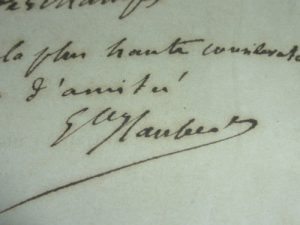 la plus haute considerat
d'amitié
Gve Flaubert